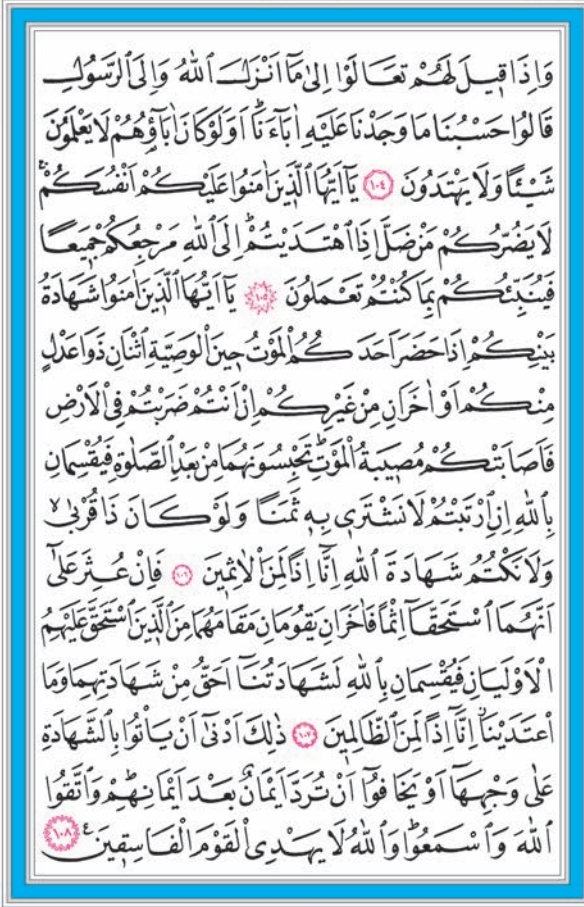 وَاِذَا قٖيلَ لَهُمْ تَعَالَوْا اِلٰى مَٓا اَنْزَلَ اللّٰهُ وَاِلَى الرَّسُولِ
قَالُوا حَسْبُنَا مَا وَجَدْنَا عَلَيْهِ اٰبَٓاءَنَاۜ اَوَلَوْ كَانَ اٰبَٓاؤُ۬هُمْ لَا يَعْلَمُونَ
شَيْـًٔا وَلَا يَهْتَدُونَ ﴿١٠٤﴾ يَٓا اَيُّهَا الَّذٖينَ اٰمَنُوا عَلَيْكُمْ اَنْفُسَكُمْۚ
لَا يَضُرُّكُمْ مَنْ ضَلَّ اِذَا اهْتَدَيْتُمْۜ اِلَى اللّٰهِ مَرْجِعُكُمْ جَمٖيعًا
فَيُنَبِّئُكُمْ بِمَا كُنْتُمْ تَعْمَلُونَ ﴿١٠٥﴾ يَٓا اَيُّهَا الَّذٖينَ اٰمَنُوا شَهَادَةُ
بَيْنِكُمْ اِذَا حَضَرَ اَحَدَكُمُ الْمَوْتُ حٖينَ الْوَصِيَّةِ اثْنَانِ ذَوَا عَدْلٍ
مِنْكُمْ اَوْ اٰخَرَانِ مِنْ غَيْرِكُمْ اِنْ اَنْتُمْ ضَرَبْتُمْ فِي الْاَرْضِ
فَاَصَابَتْكُمْ مُصٖيبَةُ الْمَوْتِۜ تَحْبِسُونَهُمَا مِنْ بَعْدِ الصَّلٰوةِ فَيُقْسِمَانِ
بِاللّٰهِ اِنِ ارْتَبْتُمْ لَا نَشْتَرٖي بِهٖ ثَمَنًا وَلَوْ كَانَ ذَا قُرْبٰىۙ
وَلَا نَكْتُمُ شَهَادَةَ اللّٰهِ اِنَّٓا اِذًا لَمِنَ الْاٰثِمٖينَ ﴿١٠٦﴾ فَاِنْ عُثِرَ عَلٰٓى
اَنَّهُمَا اسْتَحَقَّٓا اِثْمًا فَاٰخَرَانِ يَقُومَانِ مَقَامَهُمَا مِنَ الَّذٖينَ اسْتَحَقَّ عَلَيْهِمُ
الْاَوْلَيَانِ فَيُقْسِمَانِ بِاللّٰهِ لَشَهَادَتُنَٓا اَحَقُّ مِنْ شَهَادَتِهِمَا وَمَا
اعْتَدَيْنَاۘ اِنَّٓا اِذًا لَمِنَ الظَّالِمٖينَ ﴿١٠٧﴾ ذٰلِكَ اَدْنٰٓى اَنْ يَأْتُوا بِالشَّهَادَةِ
عَلٰى وَجْهِهَٓا اَوْ يَخَافُٓوا اَنْ تُرَدَّ اَيْمَانٌ بَعْدَ اَيْمَانِهِمْۜ وَاتَّقُوا
اللّٰهَ وَاسْمَعُواۜ وَاللّٰهُ لَا يَهْدِي الْقَوْمَ الْفَاسِقٖينَ۟ ﴿١٠٨﴾ ع